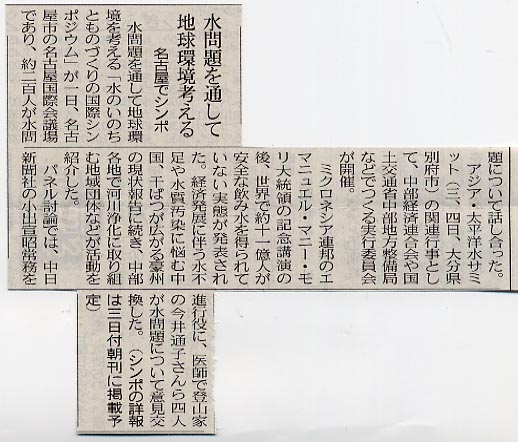 水問題を通して
地球環境考える
名古屋でシンポ
水問題を通して地球環
境を考える「水のいのち
とものづくりの国際シン
ポジウム」が一日、名古
屋市の名古屋国際会議場
であり、約二百人が水問
題について話し合った。
アジア・太平洋水サミ
ット(三、四日、大分県
別府市)の関連行事とし
て、中部経済連合会や国
土交通省中部地方整備局
などでつくる実行委員会
が開催。
ミクロネシア連邦のエ
マニュエル・マニー・モ
リ大統領の記念講演の
後、世界で約十一億人が
安全な飲み水を得られて
いない実態が発表され
た。経済発展に伴う水不
足や水質汚染に悩む中
国、干ばつが広がる豪州
の現状報告に続き、中部
各地で河川浄化に取り組
む地域団体などが活動を
紹介した。
パネル討論では、中日
新聞社の小出宣昭常務を
進行役に、医師で登山家
の今井通子さんら四人
が水問題について意見交
換した。(シンポの詳報
は三日付朝刊に掲載予
定)